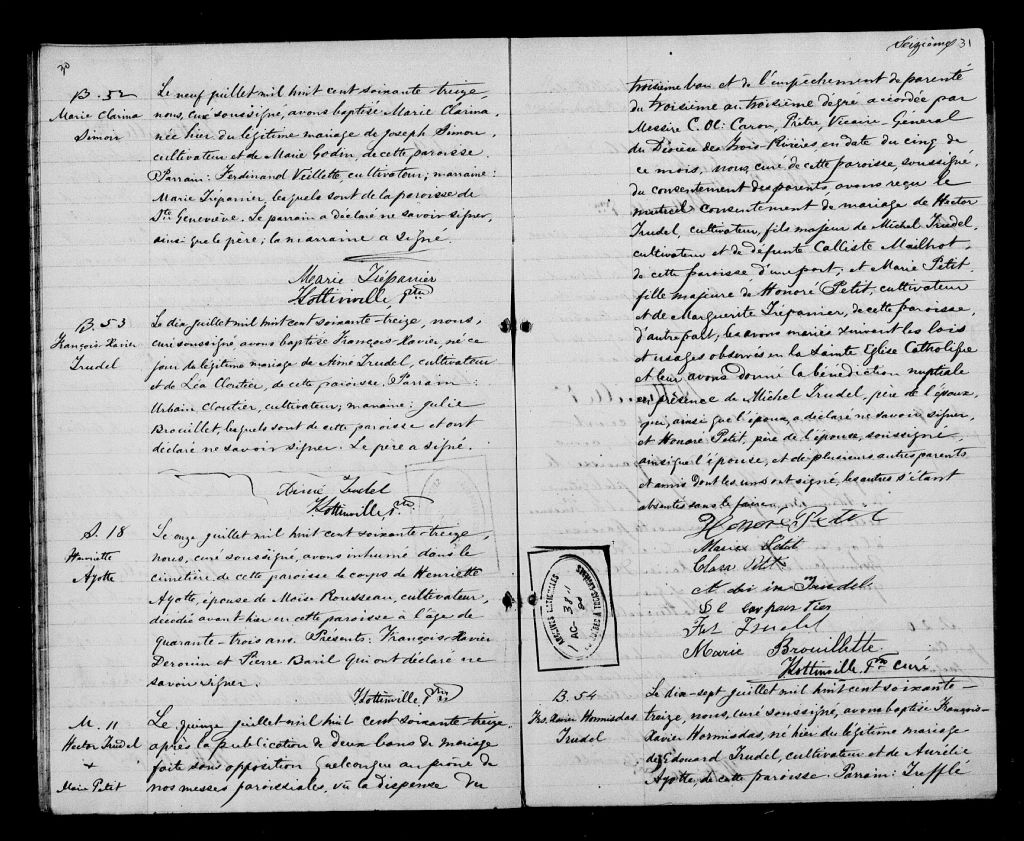 30
B. 52
Marie Clarina
Simon
Le neuf juillet mil huit cent soixante-treize,
nous, curé soussigné, avons baptisé Marie Clarina,
née hier du légitime mariage de Joseph Simon,
cultivateur et de Marie Godin, de cette paroisse.
Parrain: Ferdinand Veillette, cultivateur; marraine:
Marie Trépanier, lesquels sont de la paroisse de
Ste Geneviève. Le parrain a déclaré ne savoir signer,
ainsi que le père; la marraine a signé.
Marie Trépanier
Hottinville Ptre
B. 53
François Xavier
Trudel
Le dix juillet mil huit cent soixante-treize, nous,
curé soussigné, avons baptisé François Xavier, né ce
jour du légitime mariage de Aimé Trudel, cultivateur
et de Léa Cloutier, de cette paroisse. Parrain:
Urbain Cloutier, cultivateur; marraine: Julie
Brouillet, lesquels sont de cette paroisse et ont
déclaré ne savoir signer. Le père a signé.
Aimé Trudel
Hottinville Ptre
S. 18
Henriette
Ayotte
Le onze juillet mil huit cent soixante-treize,
nous, curé soussigné, avons inhumé dans le
cimetière de cette paroisse le corps de Henriette
Ayotte, épouse de Moïse Rousseau, cultivateur,
décédée avant hier en cette paroisse à l'âge de
quarante-trois ans. Présents: François Xavier
Peronin et Pierre Baril qui ont déclaré ne
savoir signer.
Hottinville Ptre
M. 11
Hector Trudel
+
Marie Petit
Le quinze juillet mil huit cent soixante-treize,
après la publication de deux bans de mariage
faite sans opposition quelconque au prône de
nos messes paroissiales, vu la dispense du
Seizième 31
troisième ban et de l'empêchement de parenté
du troisième au troisième degré accordée par
Messire C. Ol: Caron, Prêtre, Vicaire Général
du Diocèse des Trois-Rivières en date du cinq de
ce mois, nous, curé de cette paroisse, soussigné,
du consentement des parents, avons reçu le
mutuel consentement de mariage de Hector
Trudel, cultivateur, fils majeur de Michel Trudel,
cultivateur et de défunte Calliste Mailhot,
de cette paroisse d'une part; et Marie Petit,
fille majeure de Honoré Petit, cultivateur
et de Marguerite Trépanier, de cette paroisse,
d'autre part, les avons mariés suivant les lois
et usages observés en la Sainte Eglise Catholique
et leur avons donné la bénédiction nuptiale
en présence de Michel Trudel, père de l'époux,
qui, ainsi que l'époux, a déclaré ne savoir signer,
et Honoré Petit, père de l'épouse, soussigné,
ainsi que l'épouse, et de plusieurs autres parents
et amis dont les uns ont signé, les autres s'étant
absentés sans le faire.
Honoré Petit
Marie Petit
Clara Petit
Trudel
Trudel
Marie Brouillette
Hottinville Ptre Curé
ARCHIVES NATIONALES
AC-
B. 54
Frs. Xavier Hormisdas
Trudel
Le dix-sept juillet mil huit cent soixante-
treize, nous, curé soussigné, avons baptisé François-
Xavier Hormisdas, né hier du légitime mariage
de Edouard Trudel, cultivateur et de Aurélie
Ayotte, de cette paroisse. Parrain: Trefflé